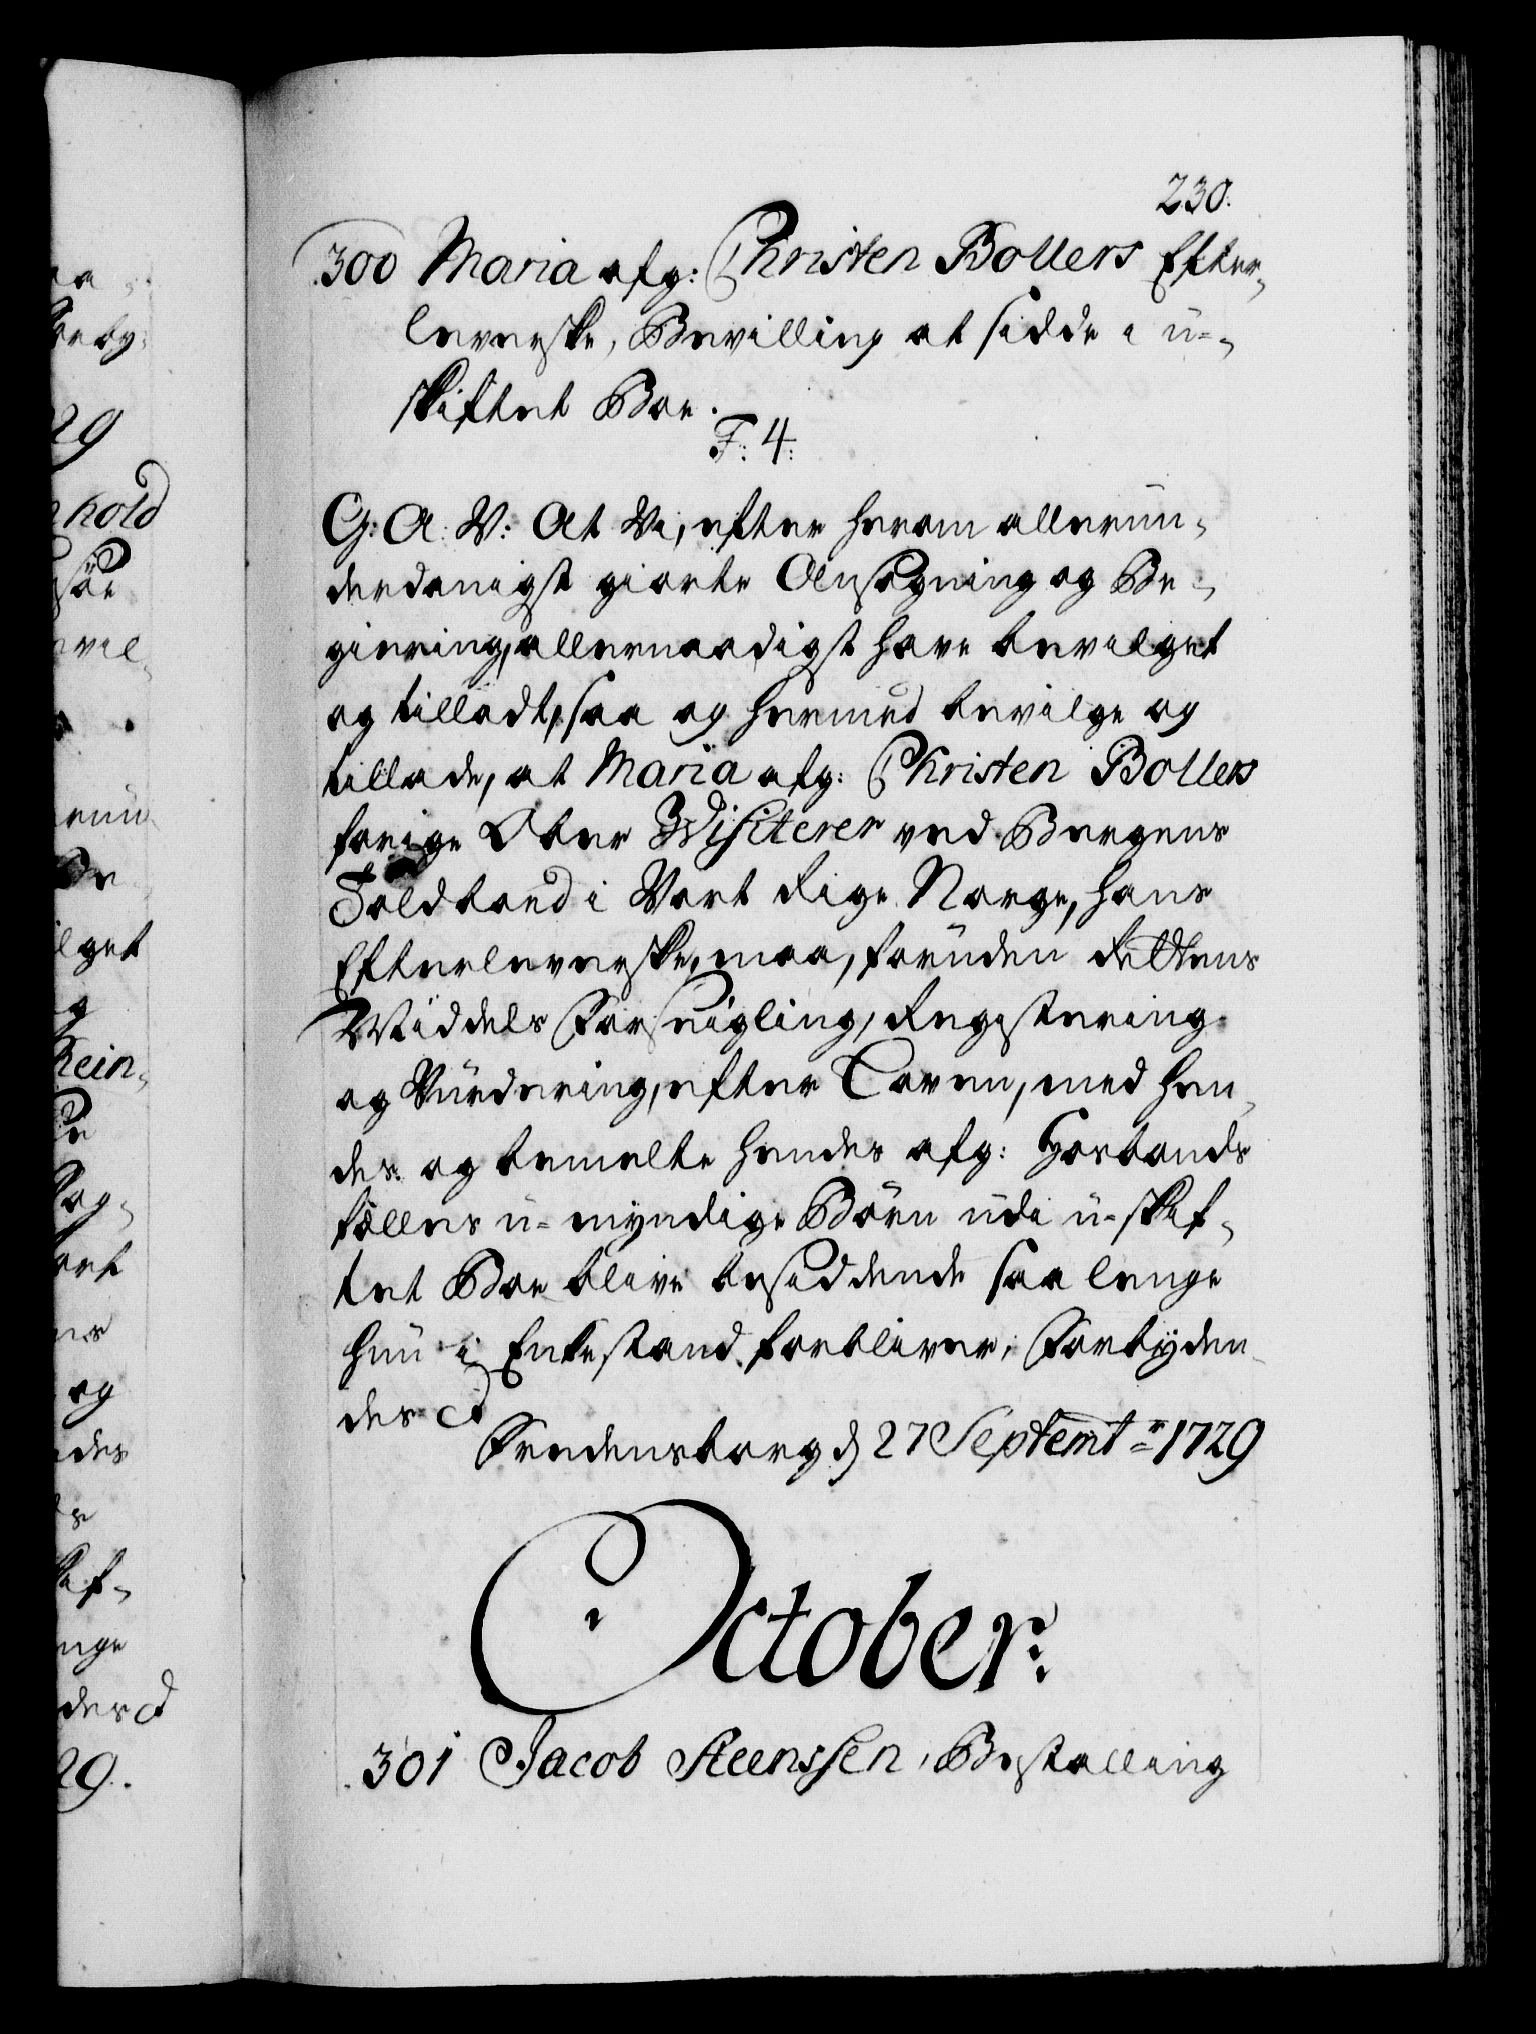 230.
300 Maria afg: Christen Bollers Efter¬
leverske, Bevilling at sidde i u-¬
skiftet Boe.
F: 4:
G: A: V: At Vi, efter herom allerun¬
derdanigst giorte Ansøgning og Be¬
giering, allernaadigst have bevilget
og tilladt, saa og hermed bevilge og
tillade, at Maria afg: Christen Bollers
forige Ober Visiterer ved Bergens
Toldboed i Vort Rige Norge, hans
Efterleverske, maa, foruden Rettens
Middels Forseigling, Registering
og Vurdering, efter Loven, med hen¬
des og bemelte hendes afg: Hosbonds
fælles u-myndige Børn udi u-skif¬
tet Boe blive besiddende saa lenge
hun i Enkestand forbliver, Forbyden¬
des etc
Fredensborg d 27 Septembr 1729
October.
301 Jacob Steenssen, Bestalling
aa
29
hold
vil¬
rum
lget
g
Rein¬
og
des
nge
des etc
29.